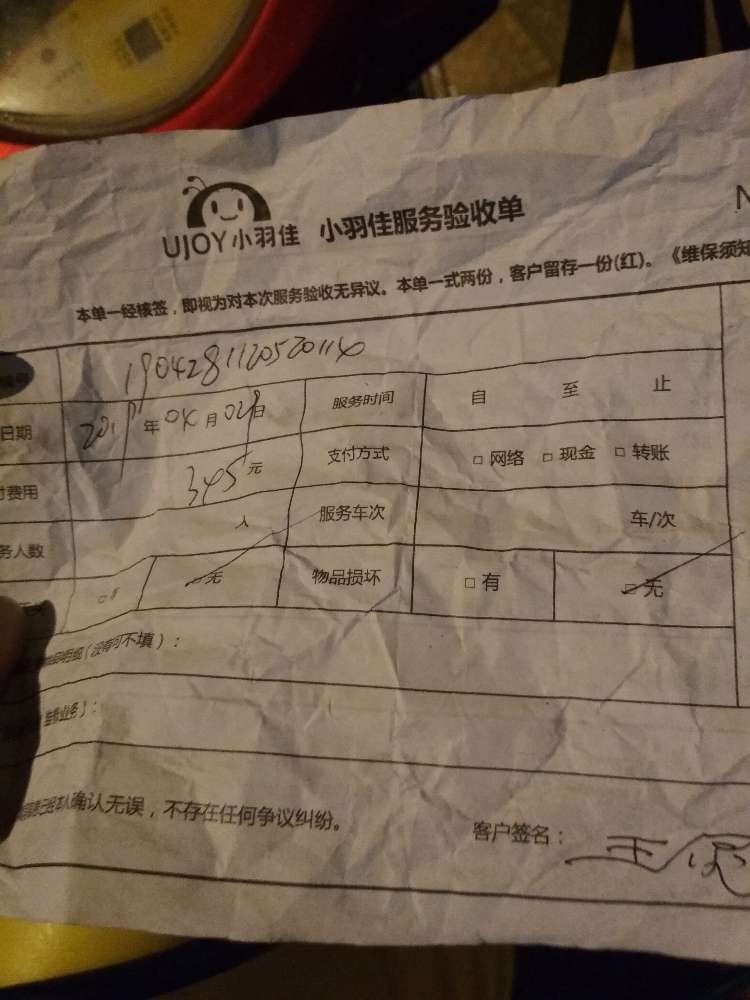 UJOY小羽佳 小羽佳服务验收单
N
本单一经核签，即视为对本次服务验收无异议。本单一式两份，客户留存一份(红)。《维保须知
1904281120520114
日期 2019年04月02日 服务时间 自 至 止
费用 345元 支付方式 □ 网络 □ 现金 □ 转账
务人数 人 服务车次 车/次
□有 □无 物品损坏 □ 有 □ 无
明细（没有可不填）：
业务）：
本人确认无误，不存在任何争议纠纷。
客户签名： 王